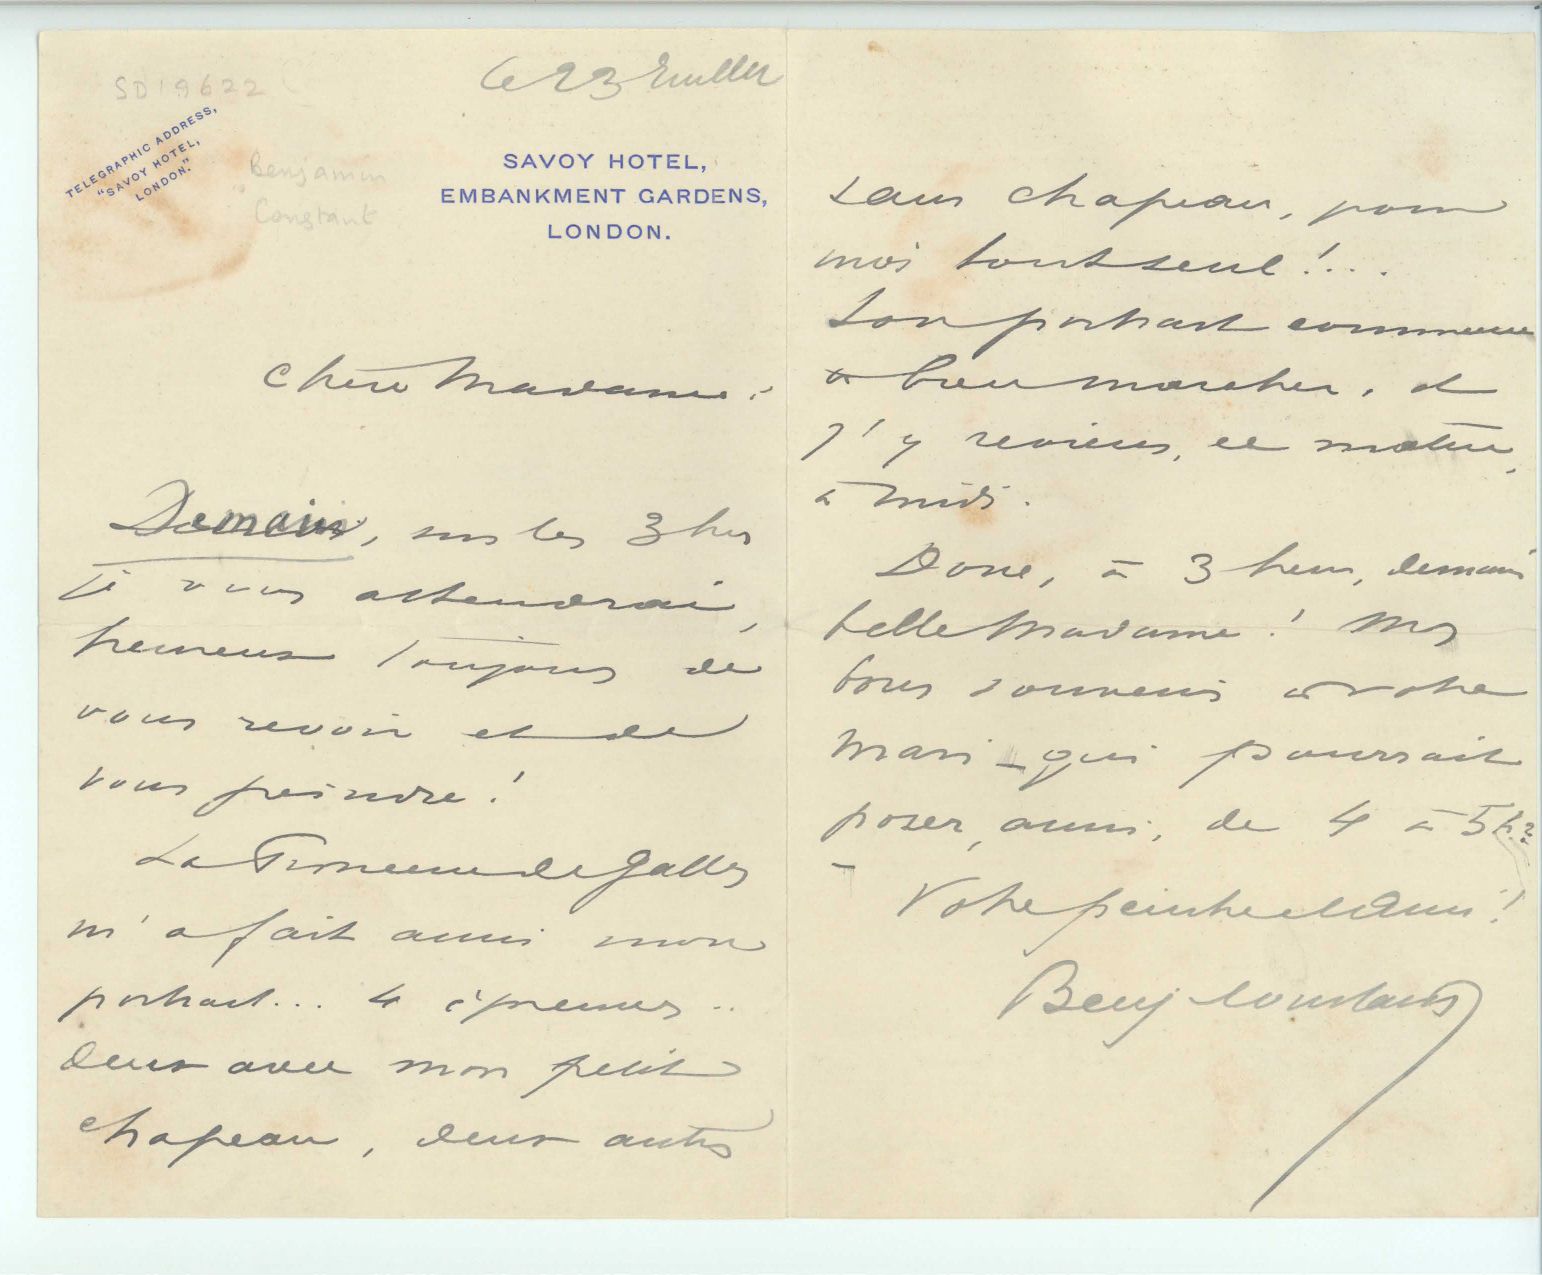 SD19622
TELEGRAPHIC ADDRESS,
"SAVOY HOTEL,
LONDON."
Benjamin
Constant
SAVOY HOTEL,
EMBANKMENT GARDENS,
LONDON.
Chère Madame :
Demain, sur les 3 hrs
je vous attendrai,
heureux toujours de
vous revoir et de
vous peindre !
La Princesse de Galles
m'a fait aussi mon
portrait... 4 épreuves ..
deux avec mon petit
chapeau, deux autres
sans chapeau, pour
moi tout seul !...
Son portrait commence
à bien marcher, et
j'y reviens, ce matin,
à midi.
Donc, à 3 heures, demain
belle Madame ! Mes
bons souvenirs à votre
mari - qui pourrait
poser, aussi, de 4 à 5 h. ?
-
Votre peintre et Ami !
Benj Constant